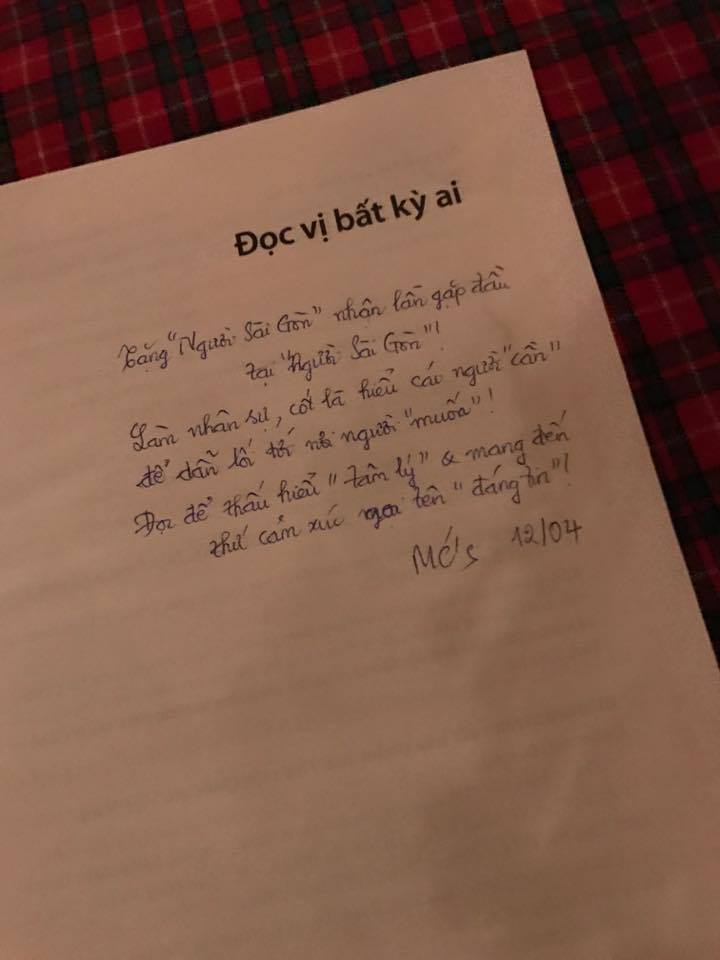 Đọc vị bất kỳ ai
Tặng "Người Sài Gòn" nhận lần gặp đầu
tại "Người Sài Gòn"!
Làm nhân sự, cốt là hiểu cái người "cần"
để dẫn lối tới nơi người "muốn"!
Đọc để thấu hiểu "tâm lý" & mang đến
thứ cảm xúc gọi tên "đáng tin"!
12/04